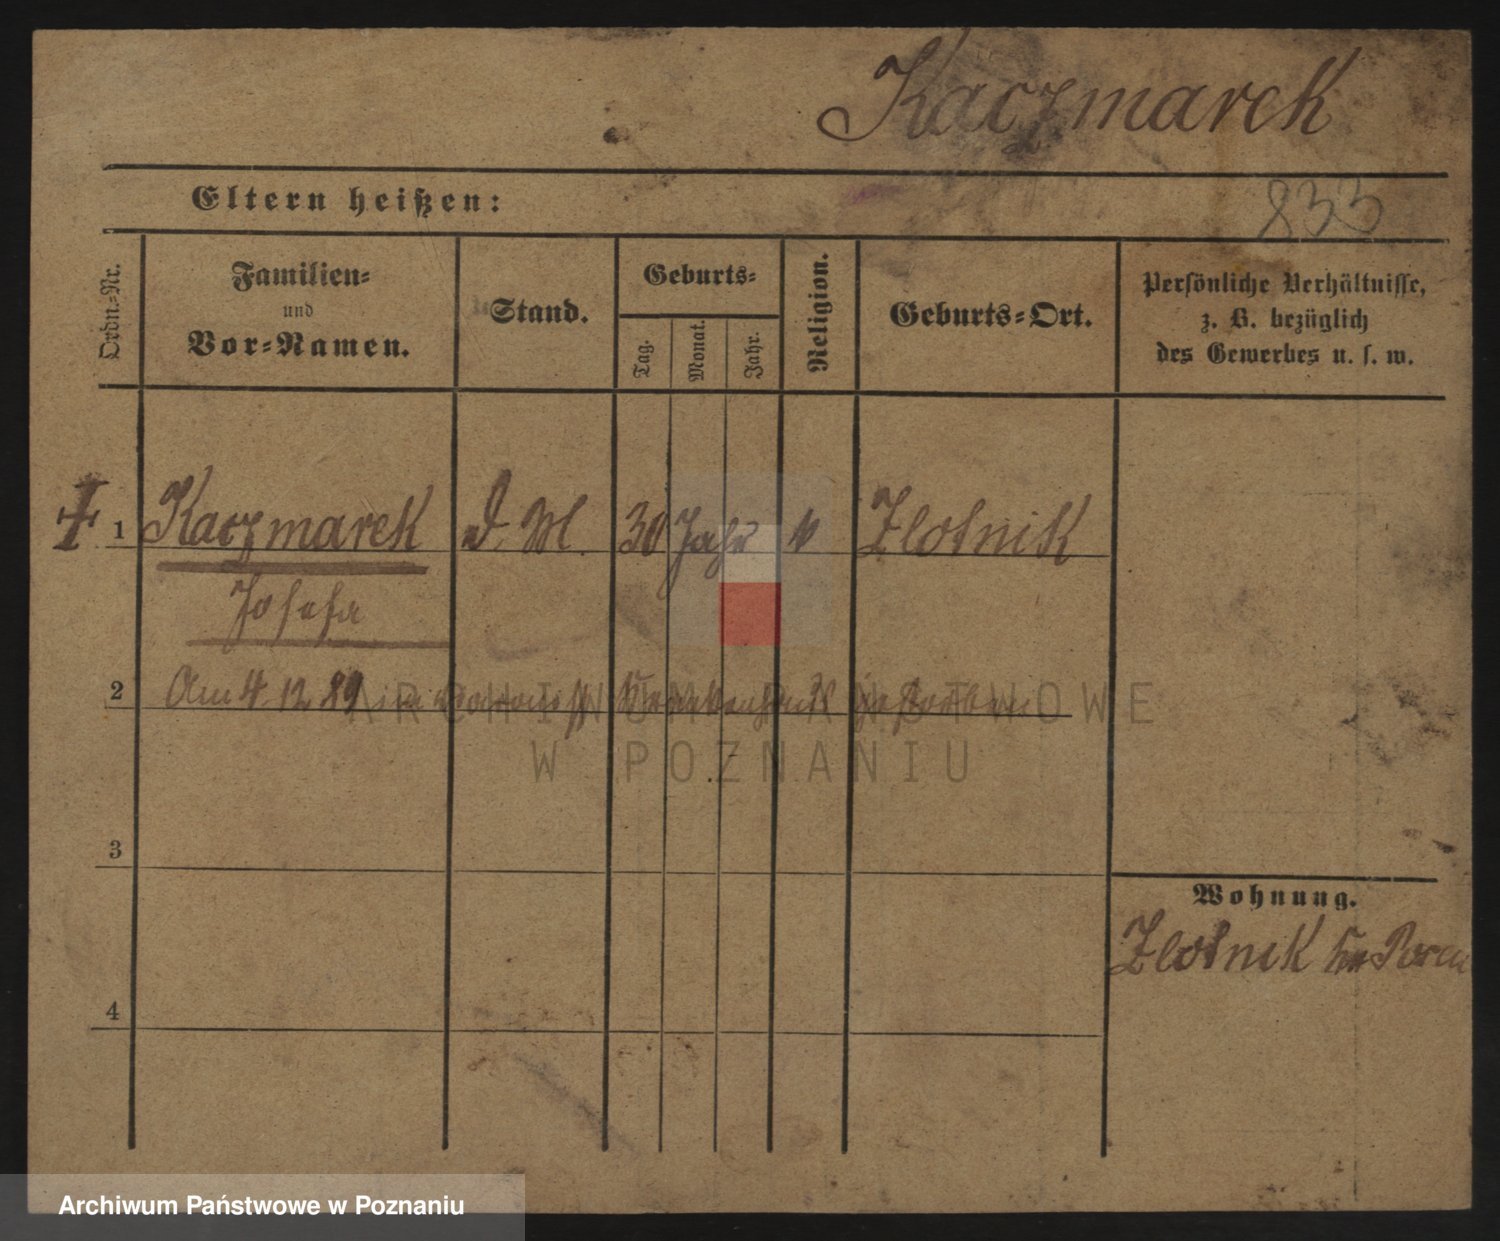 Kaczmarek
Eltern heißen:
833
Ordn.=Nr.
Familien=
und
Vor=Namen.
Stand.
Geburts=
Tag.
Monat.
Jahr.
Religion.
Geburts=Ort.
Persönliche Verhältnisse,
z. B. bezüglich
des Gewerbes u. s. w.
1 Kaczmarek d. M. 30 Jahr k Zlotnik
Josefa
2 Am 4. 12. 89 im gestorben
ARCHIWUM PAŃSTWOWE
W POZNANIU
3
Wohnung.
Zlotnik
4
Archiwum Państwowe w Poznaniu